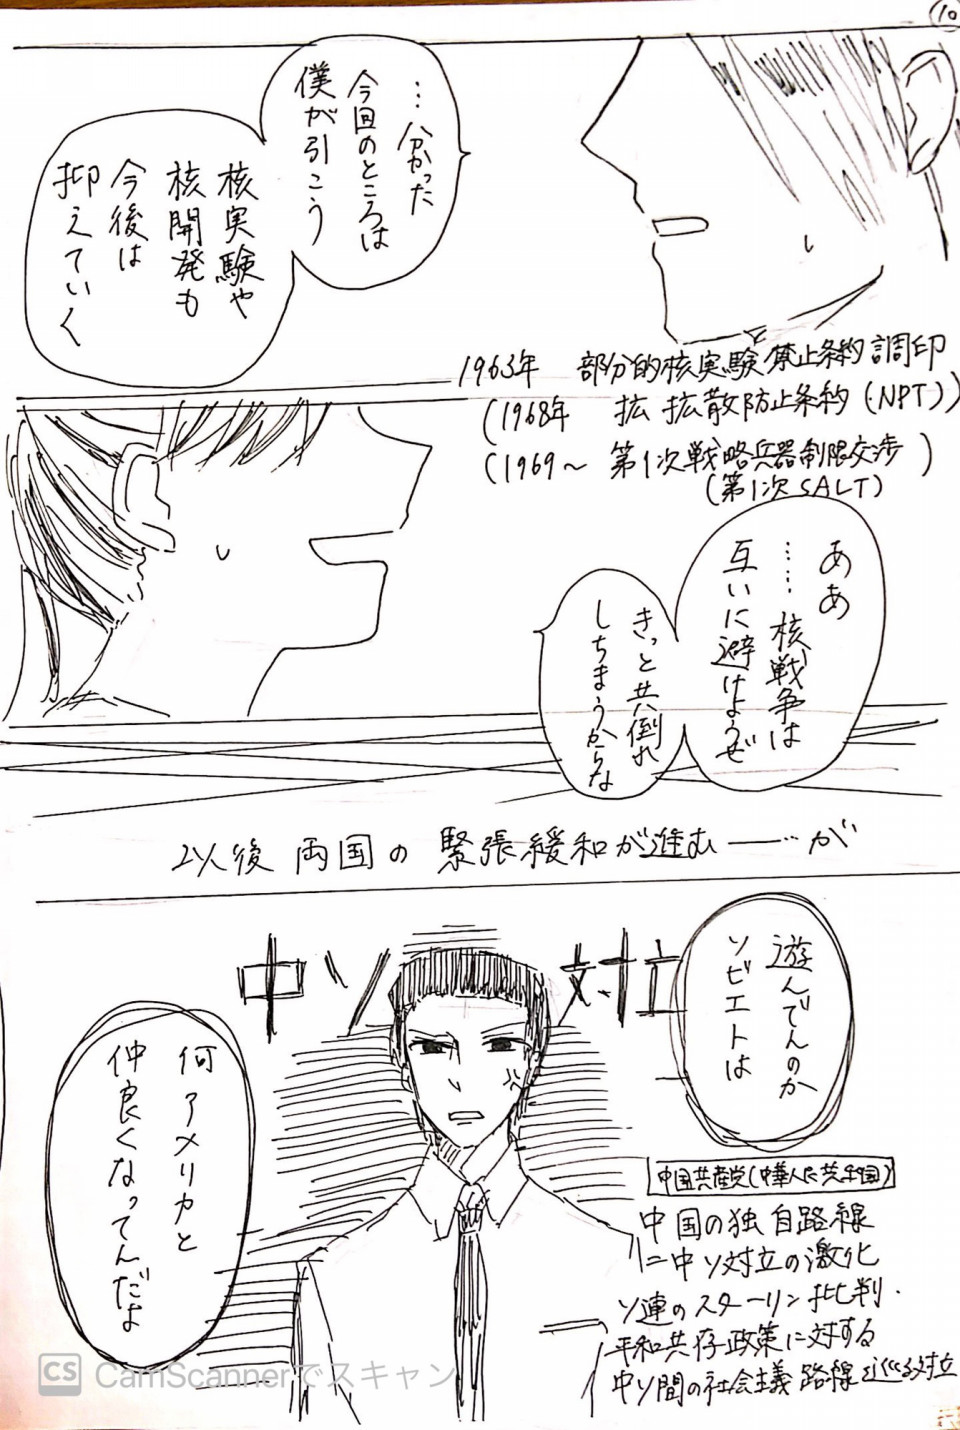 10
…分かった
今回のところは
僕が引こう
核実験や
核開発も
今後は
抑えていく
1963年 部分的核実験禁止条約調印
(1968年 拡 拡散防止条約(NPT))
(1969〜 第1次戦略兵器制限交渉)
(第1次SALT)
ああ
……核戦争は
互いに避けようぜ
きっと共倒れ
しちまうからな
以後 両国の 緊張緩和が進む――…が
中ソ対立
遊んでんのか
ソビエトは
何アメリカと
仲良くなってんだよ
中国共産党(中華人民共和国)
中国の独自路線
=中ソ対立の激化
ソ連のスターリン批判・
平和共存政策に対する
中ソ間の社会主義路線巡る対立
CS CamScannerでスキャン